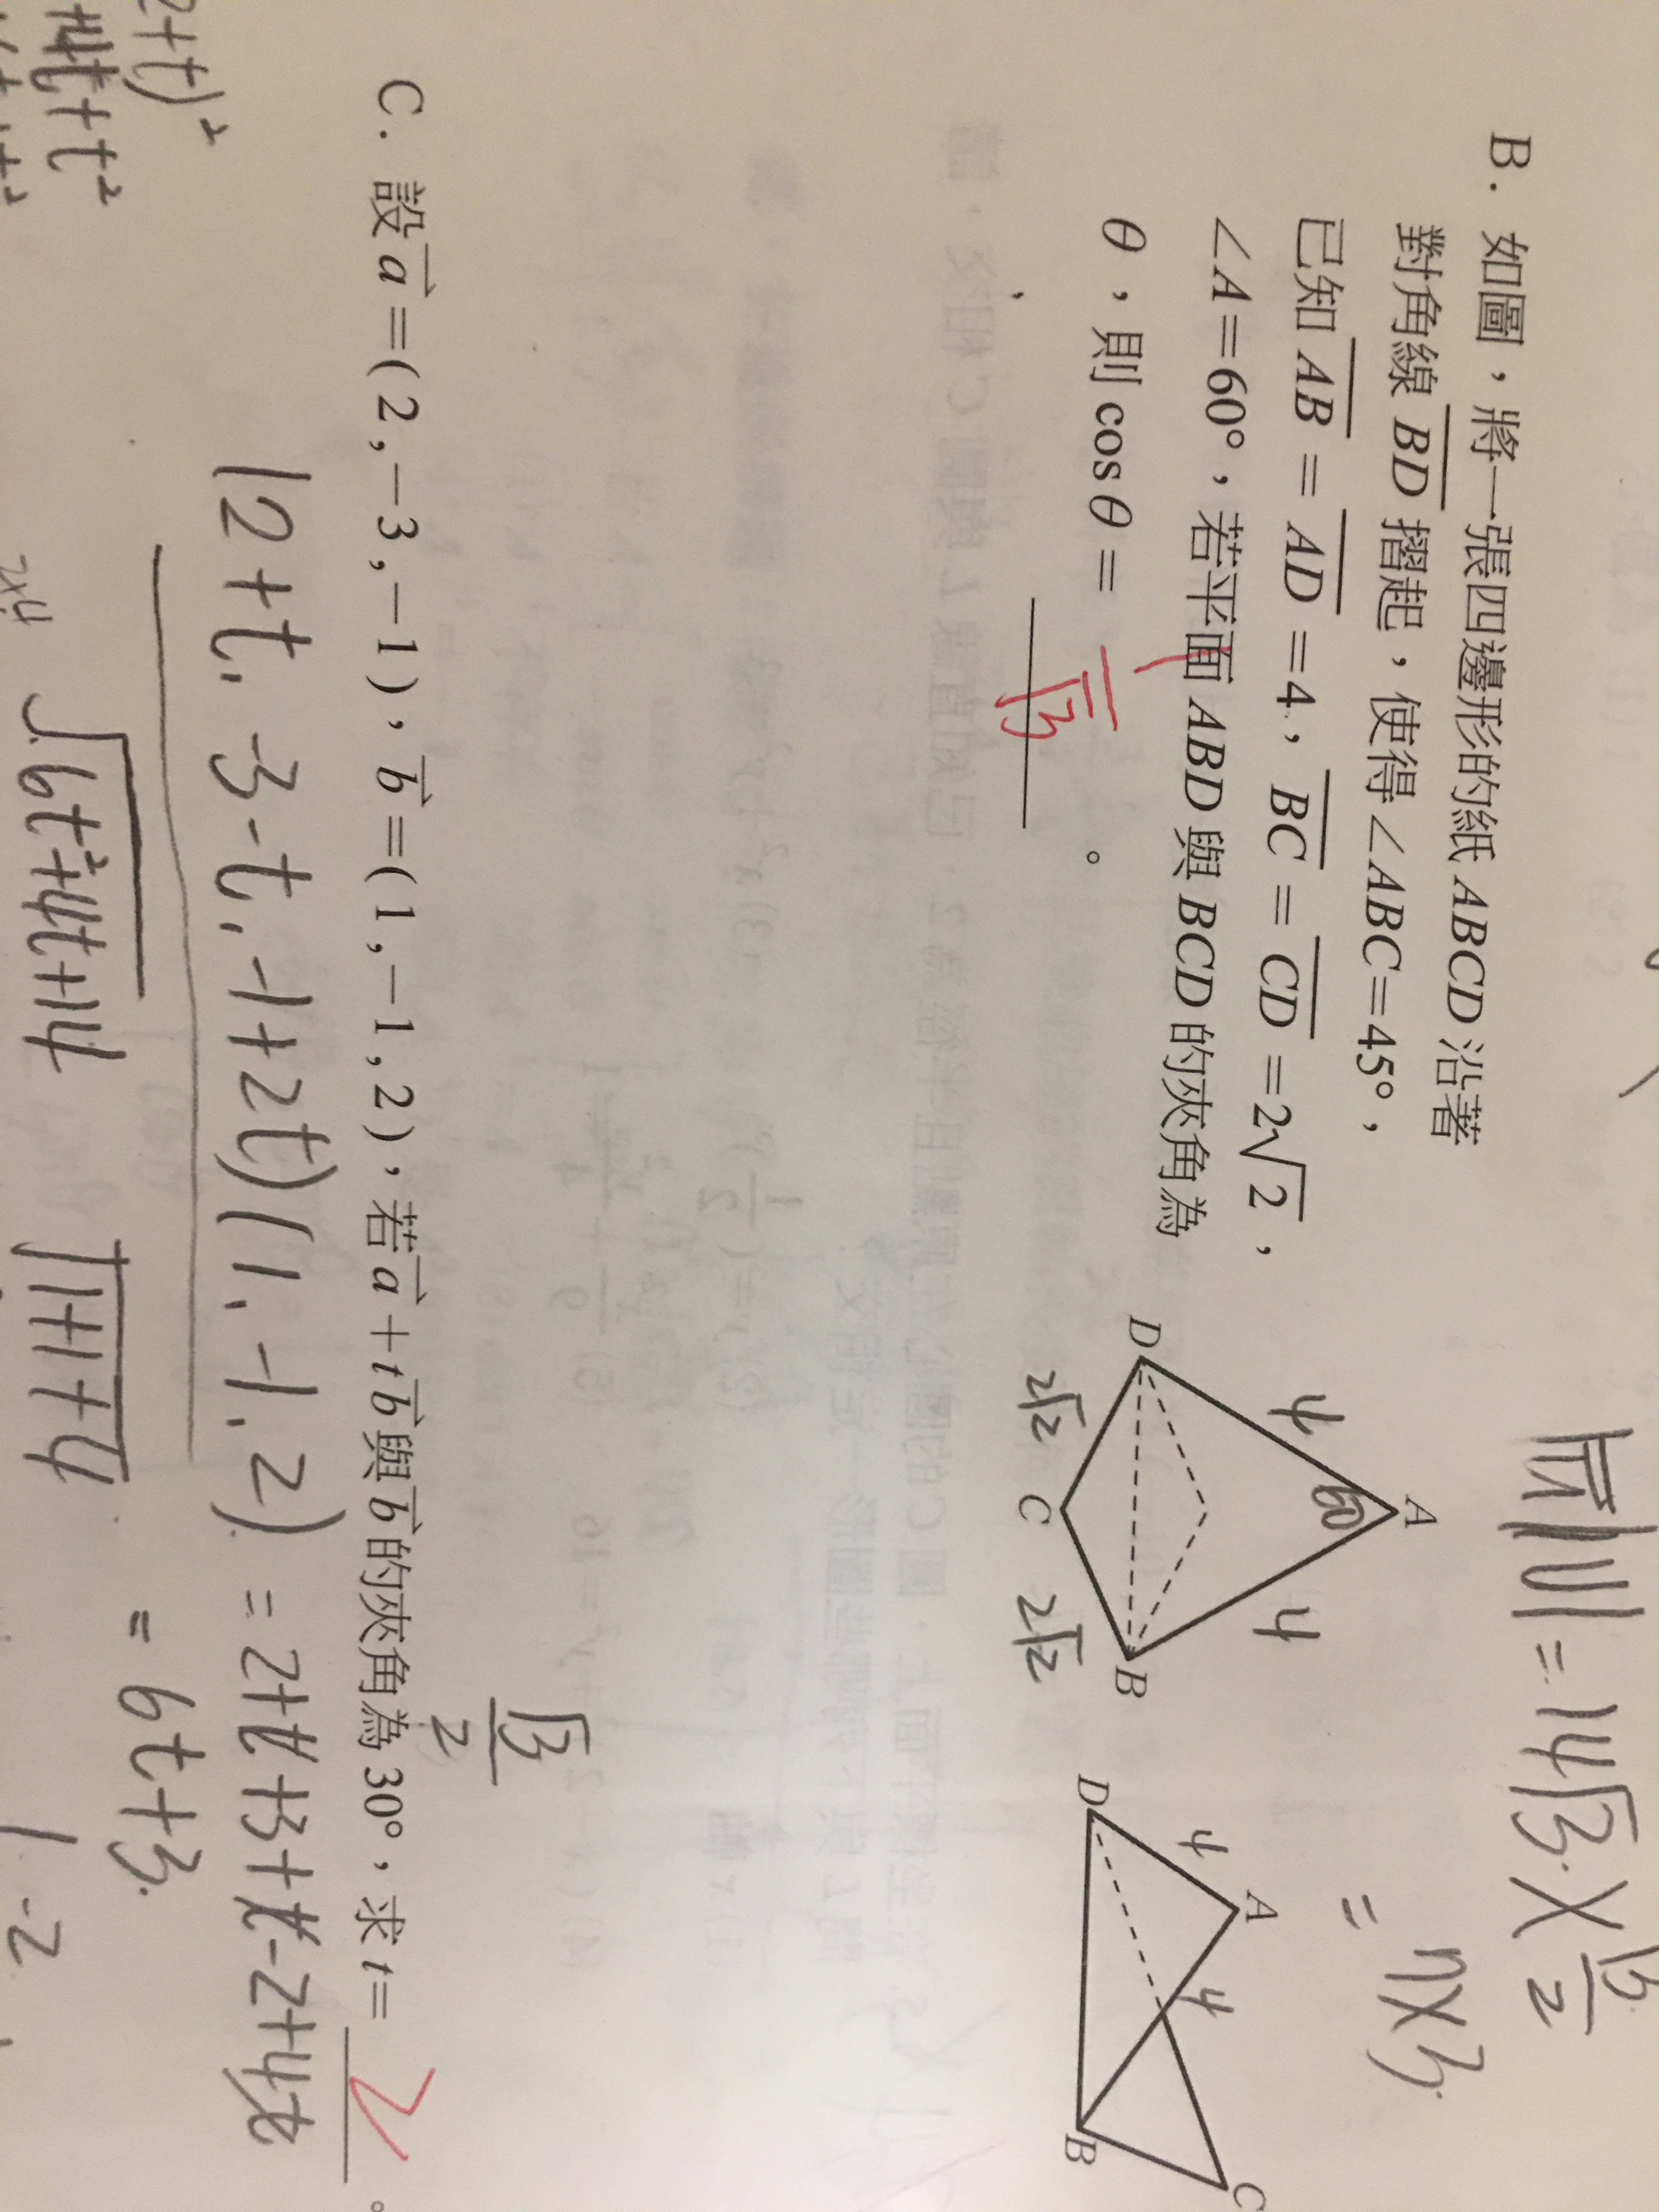 B. 如圖，將一張四邊形的紙 ABCD 沿著
對角線 BD 摺起，使得∠ABC=45°，
已知 AB = AD =4，BC = CD =2√2，
∠A=60°，若平面 ABD 與 BCD 的夾角為
θ，則 cosθ = 。
1
√3
A
60
4
4
D
B
2√2
C
2√2
A
4
4
D
B
C
= 14√3 × √3
2
= 7×3
C. 設 a =(2,-3,-1)，b =(1,-1,2)，若 a + t b 與 b 的夾角為 30°，求 t= 。
√3
2
2
(2+t, -3-t, -1+2t)(1, -1, 2) = 2+t+3+t-2+4t
= 6t+3
√6t²+4t+14 √1+1+4
2+t)²
4t+t²
2×4